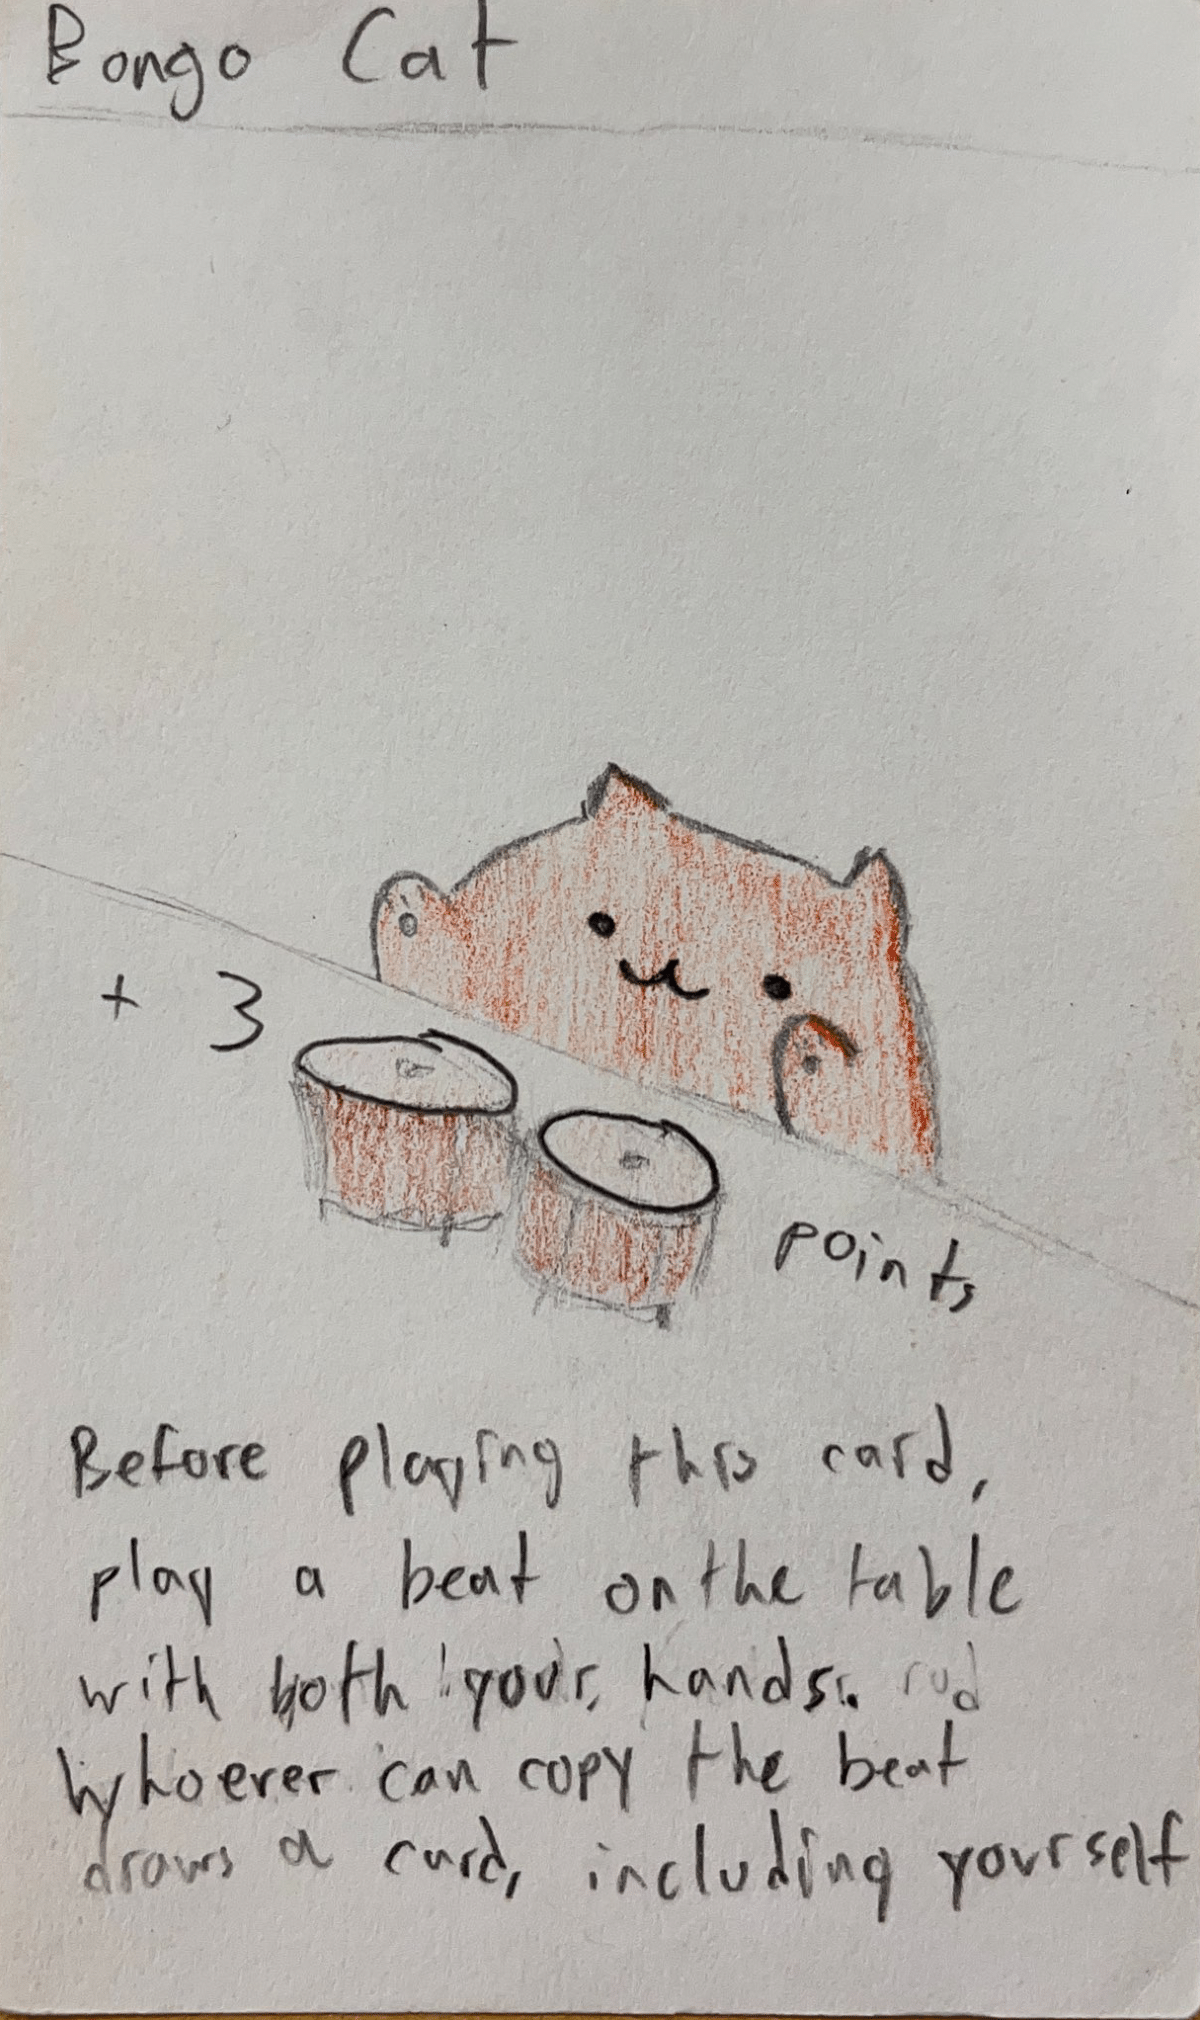 Bongo Cat
+ 3
points
Before playing this card,
play a beat on the table
with both your hands.
Whoever can copy the beat
draws a card, including yourself